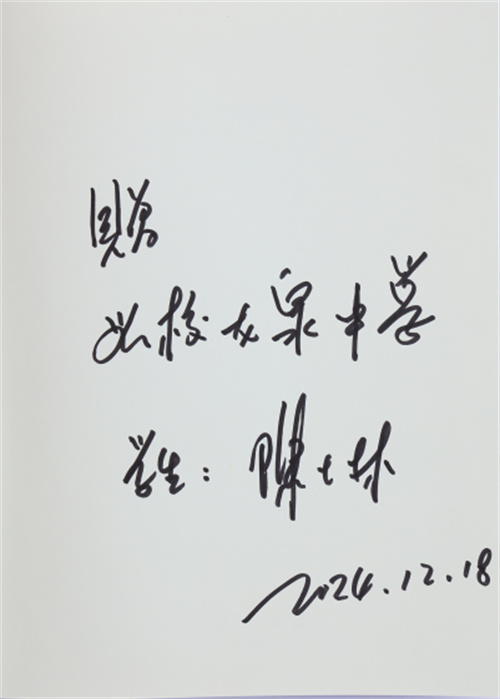 赠
母校龙泉中学
学生：陈士林
2024.12.18